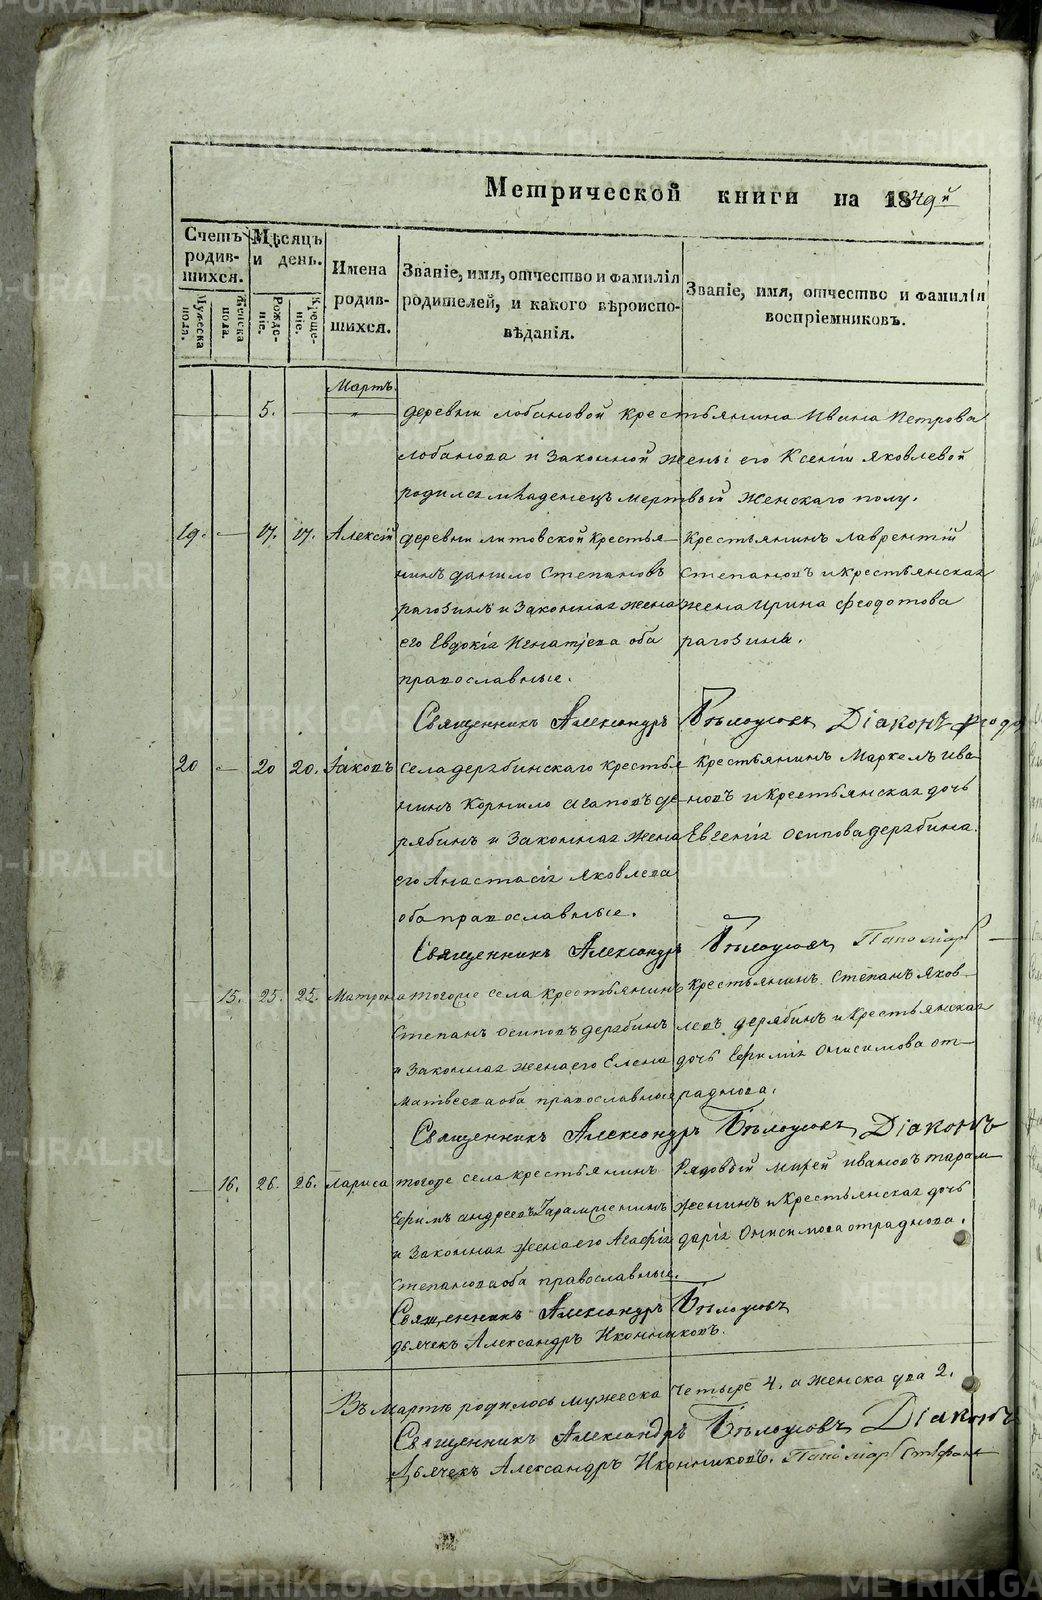 Метрической книги на 1849й
Счетъ родившихся.
Мужеска пола.
Женска пола.
Мѣсяцъ и день.
Рожденіе.
Крещеніе.
Имена родившихся.
Званіе, имя, отчество и фамилія родителей, и какого вѣроисповѣданія.
Званіе, имя, отчество и фамилія воспріемниковъ.
Мартъ
5.
деревни лобановой крестьянина Ивана Петрова
лобанова и законной жены его Ксеніи Яковлевой
родился младенецъ мертвый женскаго полу.
19. — 17. 17. Алексій деревни литовской крестья- Крестьянинъ лаврентій
нинъ данило Степановъ Степановъ и крестьянская
рагозинъ и законная жена жена Ирина феодотова
его Евдокія Игнатьева оба рагозина.
православные.
Священникъ Александръ Бѣлоусовъ Діаконъ
20 — 20 20. Іаковъ села дерябинскаго крестья- Крестьянинъ Маркелъ ива-
нинъ Корнило Агаповъ де- новъ и крестьянская дочь
рябинъ и законная жена Евгенія осипова дерябина.
его Анастасія Яковлева
оба православные.
Священникъ Александръ Бѣлоусовъ Пономарь
— 15. 25. 25. Матрона тогоже села крестьянинъ крестьянинъ Степанъ Яков-
Степанъ осиповъ дерябинъ левъ дерябинъ и крестьянская
и законная жена его Елена дочь Ефимія Онисимова от-
матвеева оба православные раднова.
Священникъ Александръ Бѣлоусовъ Діаконъ
— 16. 26. 26. Лариса тогоже села крестьянинъ Рядовый иванова тарам-
Ефимъ андреевъ Тарамженинъ женинъ и крестьянская дочь
и законная жена его Агафія дарія Онисимова отраднова.
степанова оба православные.
Священникъ Александръ Бѣлоусовъ
дьячекъ Александръ Иконниковъ.
Въ Мартѣ родилось мужеска четыре 4. а женска два 2.
Священникъ Александръ Бѣлоусовъ Діаконъ
Дьячекъ Александръ Иконниковъ. Пономарь Стефанъ
METRIKI.GASO-URAL.RU